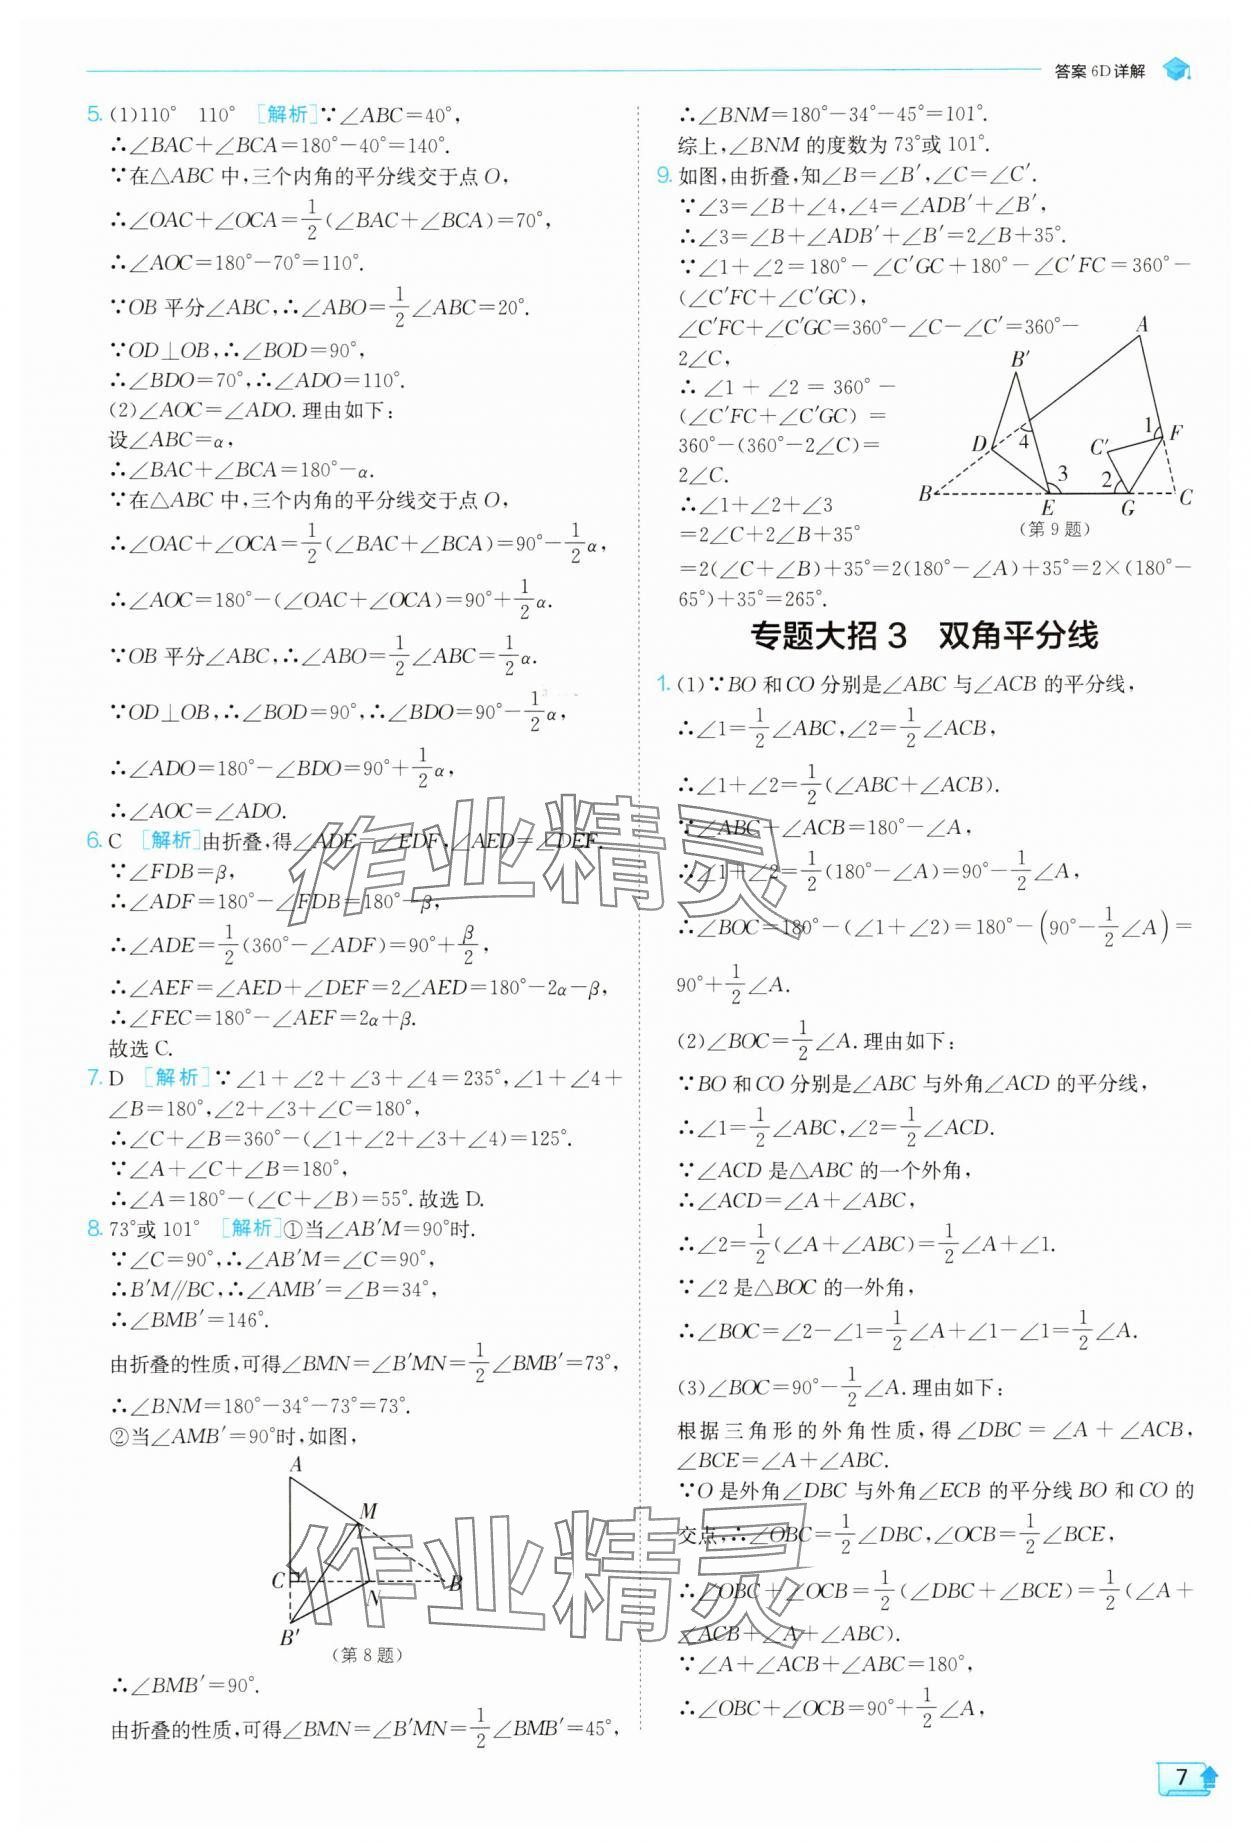 答案 6D 详解
5. (1)110° 110° [解析]∵∠ABC=40°,
∴∠BAC+∠BCA=180°-40°=140°.
∵在△ABC中,三个内角的平分线交于点O,
∴∠OAC+∠OCA=1/2(∠BAC+∠BCA)=70°,
∴∠AOC=180°-70°=110°.
∵OB平分∠ABC,∴∠ABO=1/2∠ABC=20°.
∵OD⊥OB,∴∠BOD=90°,
∴∠BDO=70°,∴∠ADO=110°.
(2)∠AOC=∠ADO.理由如下:
设∠ABC=α,
∴∠BAC+∠BCA=180°-α.
∵在△ABC中,三个内角的平分线交于点O,
∴∠OAC+∠OCA=1/2(∠BAC+∠BCA)=90°-1/2α,
∴∠AOC=180°-(∠OAC+∠OCA)=90°+1/2α.
∵OB平分∠ABC,∴∠ABO=1/2∠ABC=1/2α.
∵OD⊥OB,∴∠BOD=90°,∴∠BDO=90°-1/2α,
∴∠ADO=180°-∠BDO=90°+1/2α,
∴∠AOC=∠ADO.
6. C [解析]由折叠,得∠ADE=∠EDF,∠AED=∠DEF.
∵∠FDB=β,
∴∠ADF=180°-∠FDB=180°-β,
∴∠ADE=1/2(360°-∠ADF)=90°+β/2,
∴∠AEF=∠AED+∠DEF=2∠AED=180°-2α-β,
∴∠FEC=180°-∠AEF=2α+β.
故选C.
7. D [解析]∵∠1+∠2+∠3+∠4=235°,∠1+∠4+
∠B=180°,∠2+∠3+∠C=180°,
∴∠C+∠B=360°-(∠1+∠2+∠3+∠4)=125°.
∵∠A+∠C+∠B=180°,
∴∠A=180°-(∠C+∠B)=55°.故选D.
8. 73°或101° [解析]①当∠AB′M=90°时.
∵∠C=90°,∴∠AB′M=∠C=90°,
∴B′M∥BC,∴∠AMB′=∠B=34°,
∴∠BMB′=146°.
由折叠的性质,可得∠BMN=∠B′MN=1/2∠BMB′=73°,
∴∠BNM=180°-34°-73°=73°.
②当∠AMB′=90°时,如图,
A
M
C
N
B
B′
(第8题)
∴∠BMB′=90°.
由折叠的性质,可得∠BMN=∠B′MN=1/2∠BMB′=45°,
∴∠BNM=180°-34°-45°=101°.
综上,∠BNM的度数为73°或101°.
9. 如图,由折叠,知∠B=∠B′,∠C=∠C′.
∵∠3=∠B+∠4,∠4=∠ADB′+∠B′,
∴∠3=∠B+∠ADB′+∠B′=2∠B+35°.
∵∠1+∠2=180°-∠C′GC+180°-∠C′FC=360°-
(∠C′FC+∠C′GC),
∠C′FC+∠C′GC=360°-∠C-∠C′=360°-
2∠C,
∴∠1+∠2=360°-
(∠C′FC+∠C′GC)=
360°-(360°-2∠C)=
2∠C.
∴∠1+∠2+∠3
=2∠C+2∠B+35°
=2(∠C+∠B)+35°=2(180°-∠A)+35°=2×(180°-
65°)+35°=265°.
A
B′
D
4
1
F
C′
3
2
B
E
G
C
(第9题)
专题大招3 双角平分线
1. (1)∵BO和CO分别是∠ABC与∠ACB的平分线,
∴∠1=1/2∠ABC,∠2=1/2∠ACB,
∴∠1+∠2=1/2(∠ABC+∠ACB).
∵∠ABC+∠ACB=180°-∠A,
∴∠1+∠2=1/2(180°-∠A)=90°-1/2∠A,
∴∠BOC=180°-(∠1+∠2)=180°-(90°-1/2∠A)=
90°+1/2∠A.
(2)∠BOC=1/2∠A.理由如下:
∵BO和CO分别是∠ABC与外角∠ACD的平分线,
∴∠1=1/2∠ABC,∠2=1/2∠ACD.
∵∠ACD是△ABC的一个外角,
∴∠ACD=∠A+∠ABC,
∴∠2=1/2(∠A+∠ABC)=1/2∠A+∠1.
∵∠2是△BOC的一外角,
∴∠BOC=∠2-∠1=1/2∠A+∠1-∠1=1/2∠A.
(3)∠BOC=90°-1/2∠A.理由如下:
根据三角形的外角性质,得∠DBC=∠A+∠ACB,
∠BCE=∠A+∠ABC.
∵O是外角∠DBC与外角∠ECB的平分线BO和CO的
交点,∴∠OBC=1/2∠DBC,∠OCB=1/2∠BCE,
∴∠OBC+∠OCB=1/2(∠DBC+∠BCE)=1/2(∠A+
∠ACB+∠A+∠ABC).
∵∠A+∠ACB+∠ABC=180°,
∴∠OBC+∠OCB=90°+1/2∠A,
作业精灵
作业精灵
7